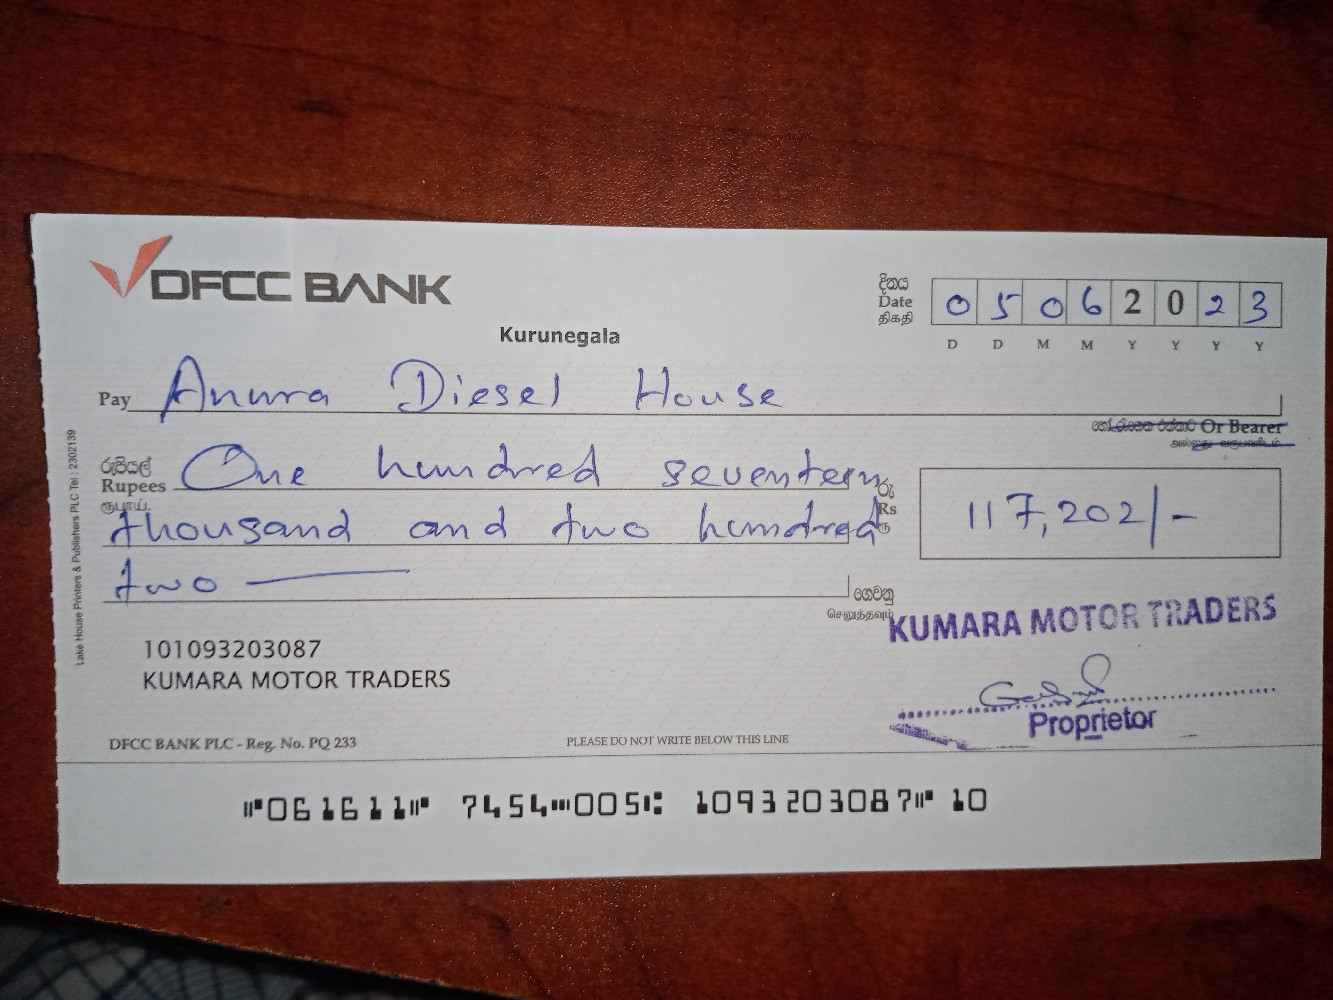 DFCC BANK
Kurunegala
දිනය
Date
திகதி
0 5 0 6 2 0 2 3
D D M M Y Y Y Y
Pay Anura Diesel House
Or Bearer
රුපියල්
Rupees One hundred seventeen
ரூபாய்
thousand and two hundred
two
රු
Rs
ரூ
117,202/-
ගෙවනු
செலுத்தவும்
KUMARA MOTOR TRADERS
Proprietor
101093203087
KUMARA MOTOR TRADERS
DFCC BANK PLC - Reg. No. PQ 233
PLEASE DO NOT WRITE BELOW THIS LINE
Lake House Printers & Publishers PLC Tel : 2302139
⑈061611⑈ 7454⑉005⑆ 1093203087⑈ 10